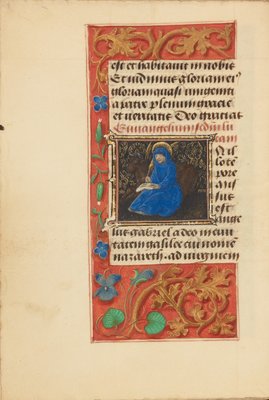 est et habitauit in nobis
Et vidimus gloriam ei9
gloriam quasi vnigeniti
a patre plenum gracie
et veritatis Deo gracias
Euuangelium scdm lu
cam
In il
lo te
pore
an
sus
est
ange
lus gabriel a deo in ciui
tatem galilee cui nomē
nazareth . ad virginem